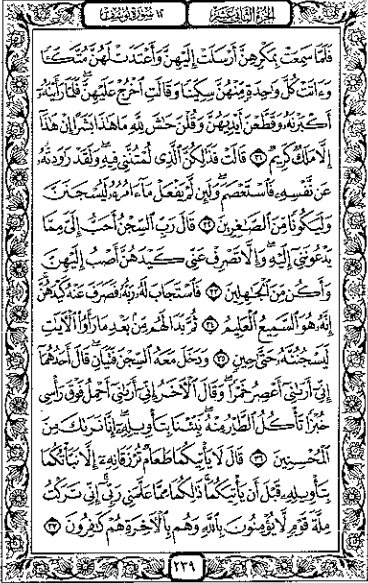 الجزء الثاني عشر ١٢ سورة يوسف
فَلَمَّا سَمِعَتْ بِمَكْرِهِنَّ أَرْسَلَتْ إِلَيْهِنَّ وَأَعْتَدَتْ لَهُنَّ مُتَّكَـًٔا
وَءَاتَتْ كُلَّ وَٰحِدَةٍ مِّنْهُنَّ سِكِّينًا وَقَالَتِ ٱخْرُجْ عَلَيْهِنَّ ۖ فَلَمَّا رَأَيْنَهُۥٓ
أَكْبَرْنَهُۥ وَقَطَّعْنَ أَيْدِيَهُنَّ وَقُلْنَ حَٰشَ لِلَّهِ مَا هَٰذَا بَشَرًا إِنْ هَٰذَآ
إِلَّا مَلَكٌ كَرِيمٌ ٣١ قَالَتْ فَذَٰلِكُنَّ ٱلَّذِى لُمْتُنَّنِى فِيهِ ۖ وَلَقَدْ رَٰوَدتُّهُۥ
عَن نَّفْسِهِۦ فَٱسْتَعْصَمَ ۖ وَلَئِن لَّمْ يَفْعَلْ مَآ ءَامُرُهُۥ لَيُسْجَنَنَّ
وَلَيَكُونًا مِّنَ ٱلصَّٰغِرِينَ ٣٢ قَالَ رَبِّ ٱلسِّجْنُ أَحَبُّ إِلَىَّ مِمَّا
يَدْعُونَنِىٓ إِلَيْهِ ۖ وَإِلَّا تَصْرِفْ عَنِّى كَيْدَهُنَّ أَصْبُ إِلَيْهِنَّ
وَأَكُن مِّنَ ٱلْجَٰهِلِينَ ٣٣ فَٱسْتَجَابَ لَهُۥ رَبُّهُۥ فَصَرَفَ عَنْهُ كَيْدَهُنَّ ۚ
إِنَّهُۥ هُوَ ٱلسَّمِيعُ ٱلْعَلِيمُ ٣٤ ثُمَّ بَدَا لَهُم مِّنۢ بَعْدِ مَا رَأَوُا۟ ٱلْءَايَٰتِ
لَيَسْجُنُنَّهُۥ حَتَّىٰ حِينٍ ٣٥ وَدَخَلَ مَعَهُ ٱلسِّجْنَ فَتَيَانِ ۖ قَالَ أَحَدُهُمَآ
إِنِّىٓ أَرَىٰنِىٓ أَعْصِرُ خَمْرًا ۖ وَقَالَ ٱلْءَاخَرُ إِنِّىٓ أَرَىٰنِىٓ أَحْمِلُ فَوْقَ رَأْسِى
خُبْزًا تَأْكُلُ ٱلطَّيْرُ مِنْهُ ۖ نَبِّئْنَا بِتَأْوِيلِهِۦٓ ۖ إِنَّا نَرَىٰكَ مِنَ
ٱلْمُحْسِنِينَ ٣٦ قَالَ لَا يَأْتِيكُمَا طَعَامٌ تُرْزَقَانِهِۦٓ إِلَّا نَبَّأْتُكُمَا
بِتَأْوِيلِهِۦ قَبْلَ أَن يَأْتِيَكُمَا ۚ ذَٰلِكُمَا مِمَّا عَلَّمَنِى رَبِّىٓ ۚ إِنِّى تَرَكْتُ
مِلَّةَ قَوْمٍ لَّا يُؤْمِنُونَ بِٱللَّهِ وَهُم بِٱلْءَاخِرَةِ هُمْ كَٰفِرُونَ ٣٧
٢٣٩